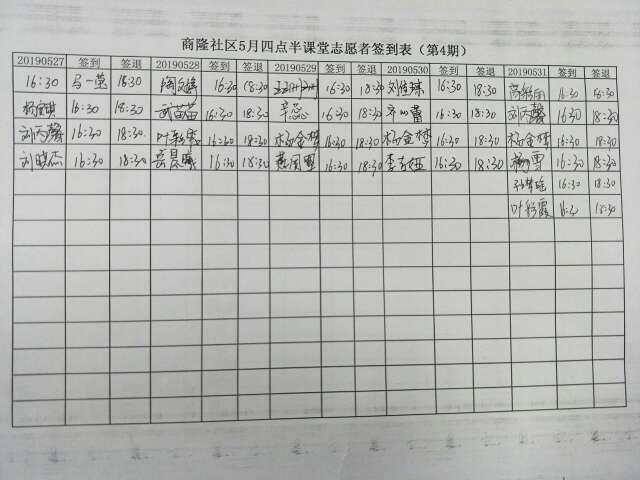 商隆社区5月四点半课堂志愿者签到表（第4期）
20190527 签到 签退 20190528 签到 签退 20190529 签到 签退 20190530 签到 签退 20190531 签到 签退
16:30 马一 18:30 16:30 18:30 16:30 18:30 刘 16:30 18:30 16:30 18:30
16:30 18:30 刘苗苗 16:30 18:30 辛蕊 16:30 18:30 16:30 18:30 刘丙馨 16:30 18:30
刘丙馨 16:30 18:30 叶彩霞 16:30 18:30 杨金梦 16:30 18:30 杨金梦 16:30 18:30 杨金梦 16:30 18:30
刘晓杰 16:30 18:30 16:30 18:30 16:30 18:30 李 16:30 18:30 杨雪 16:30 18:30
16:30 18:30
叶彩霞 16:30 18:30